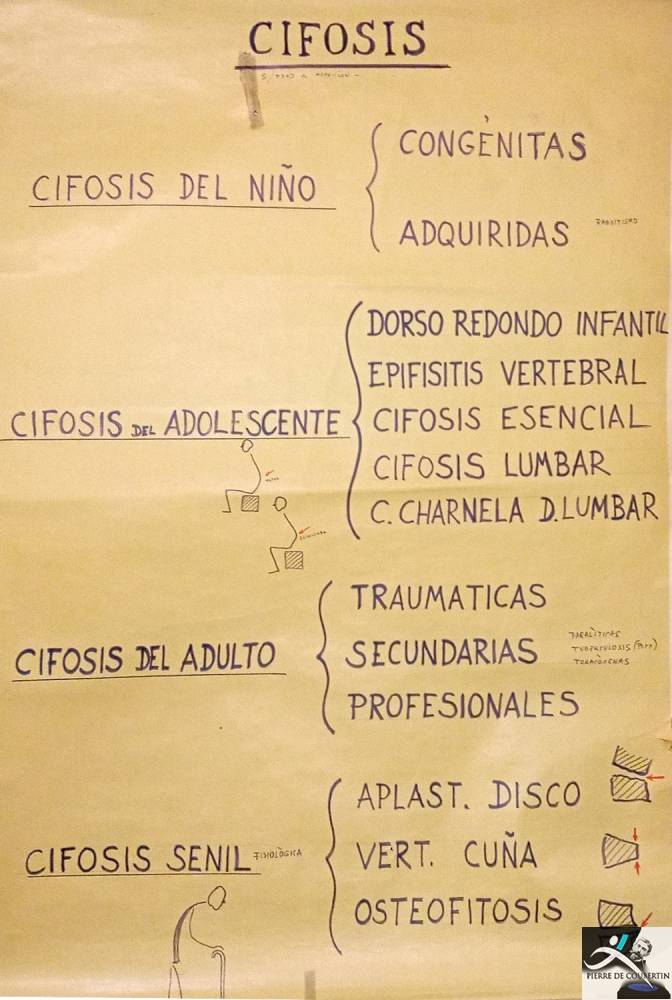 CIFOSIS
CIFOSIS DEL NIÑO
CONGÈNITAS
ADQUIRIDAS
RAQUITISMO
CIFOSIS DEL ADOLESCENTE
DORSO REDONDO INFANTIL
EPIFISITIS VERTEBRAL
CIFOSIS ESENCIAL
CIFOSIS LUMBAR
C. CHARNELA D. LUMBAR
CIFOSIS DEL ADULTO
TRAUMATICAS
SECUNDARIAS
PARALÌTICAS
TUBERCULOSIS (POTT)
TORACÒGENAS
PROFESIONALES
CIFOSIS SENIL
FISIOLÒGICA
APLAST. DISCO
VERT. CUÑA
OSTEOFITOSIS
PIERRE DE COUBERTIN